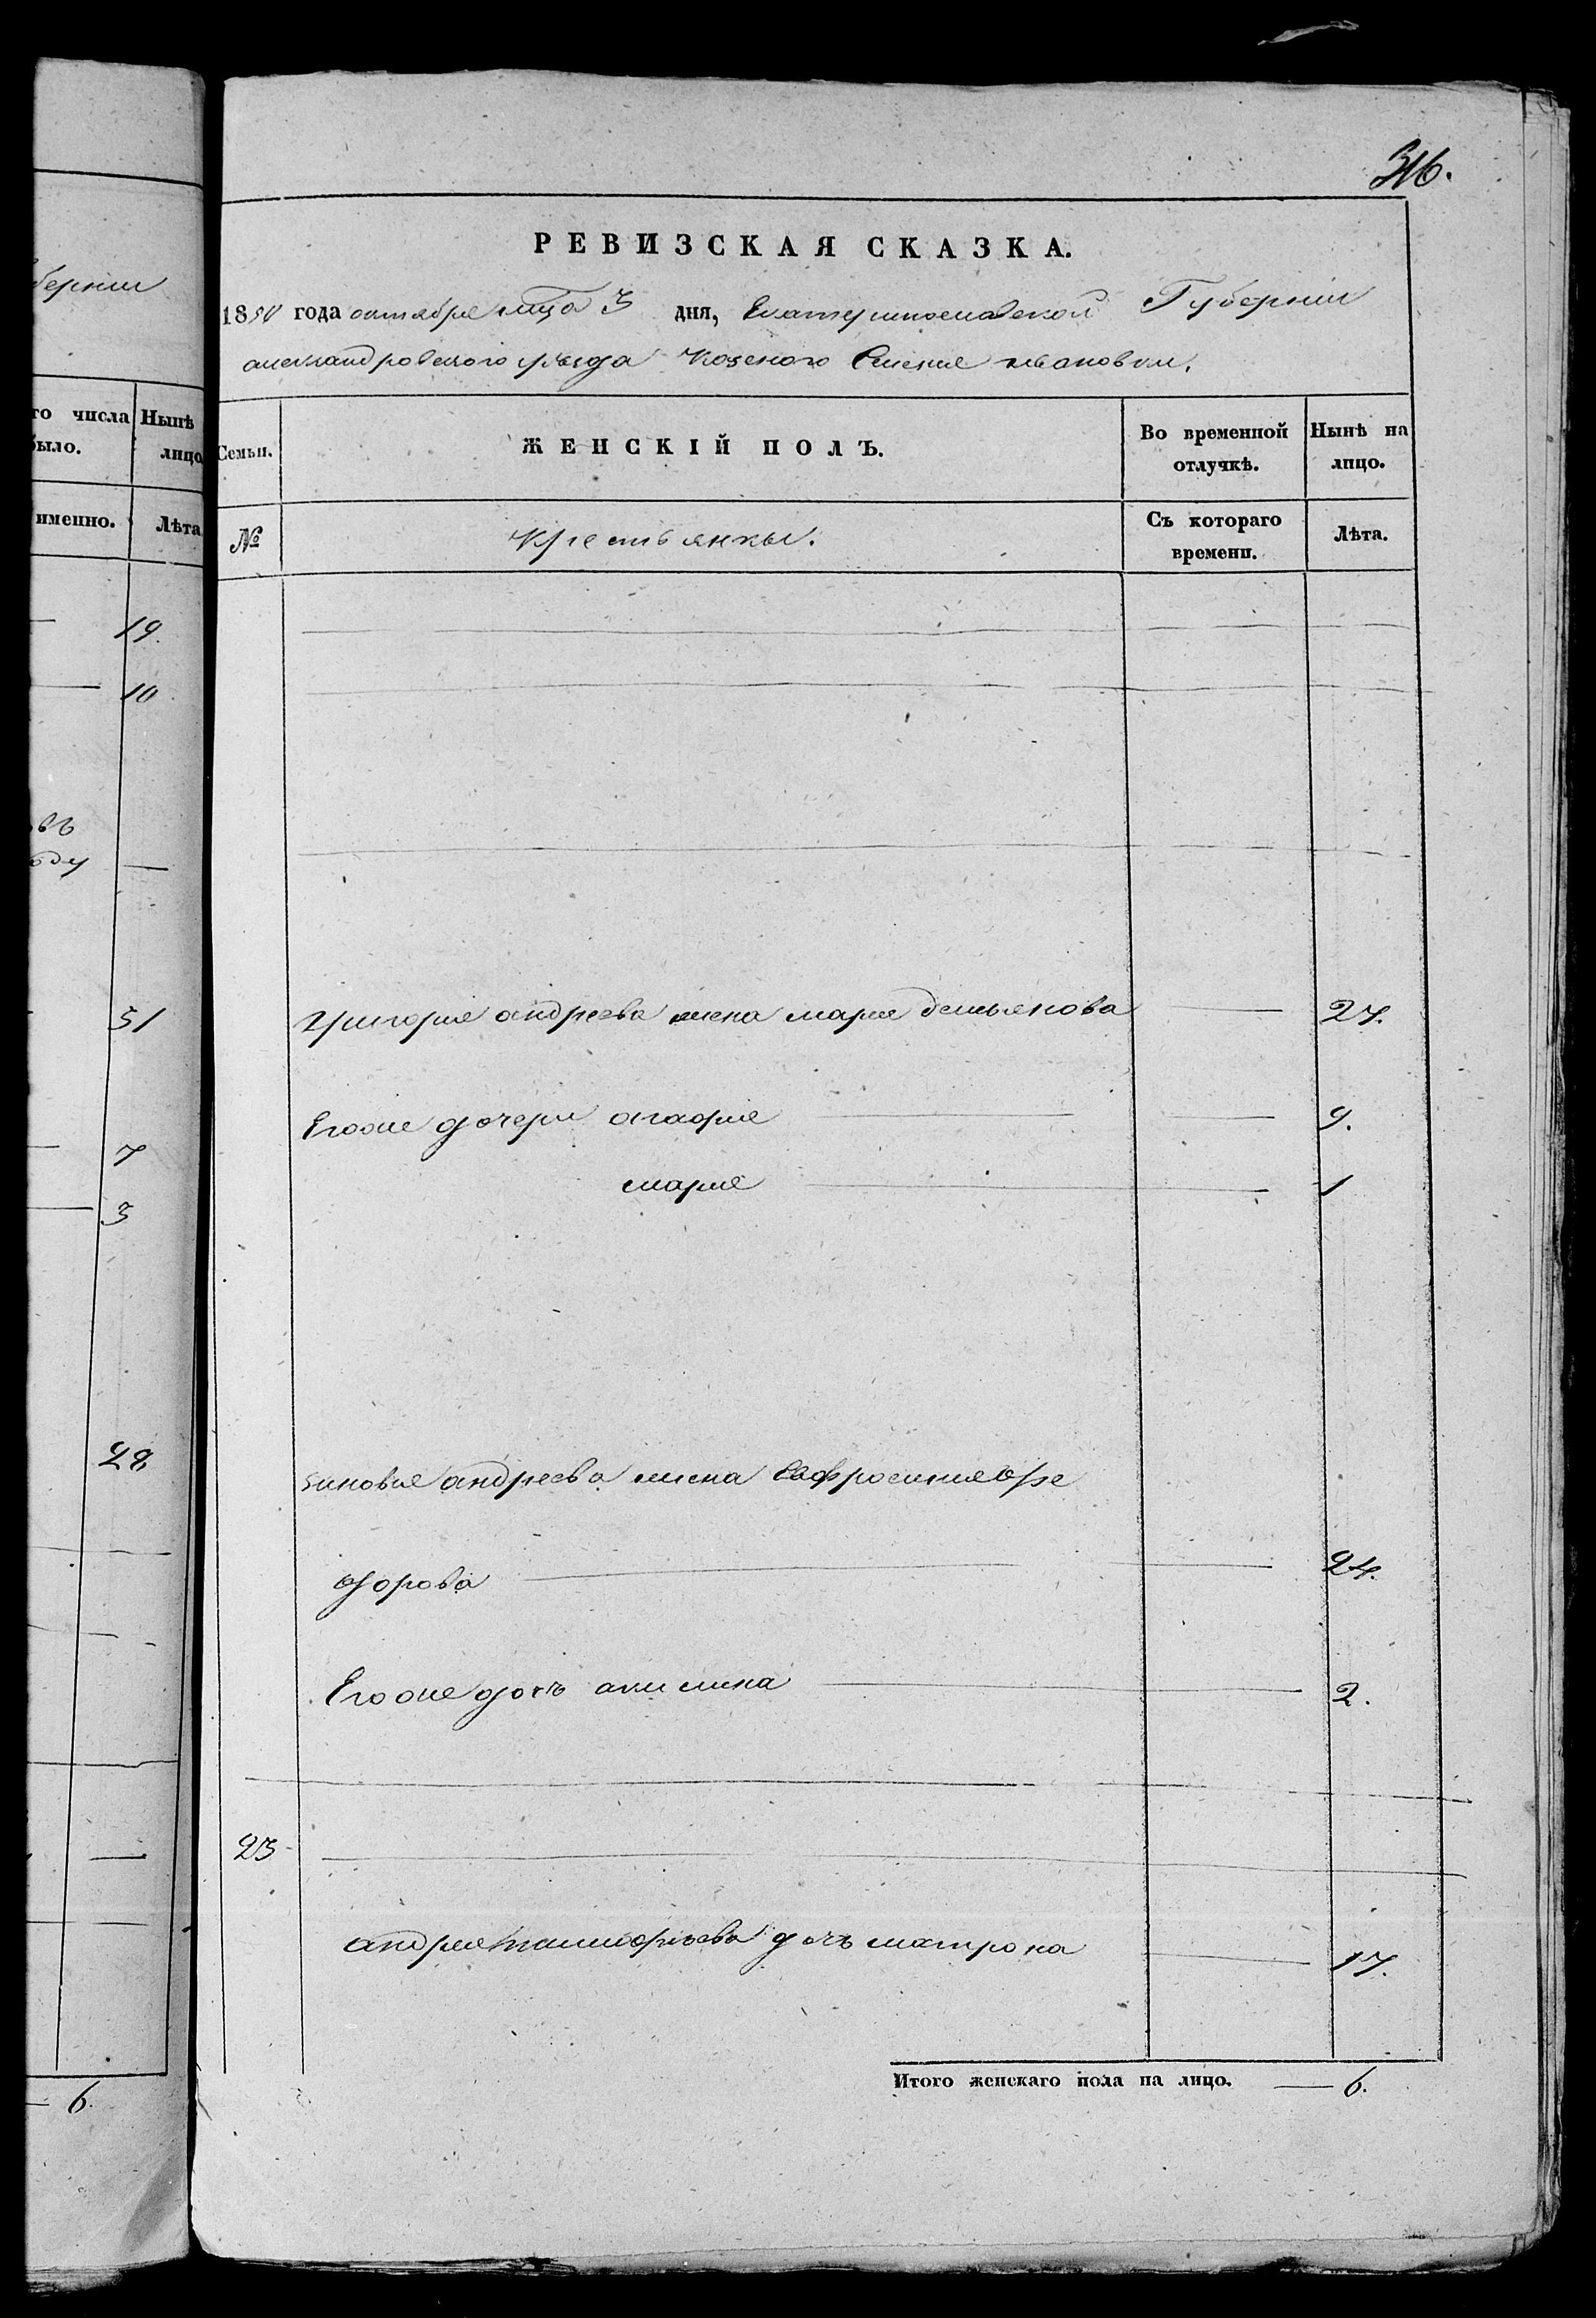 316.
РЕВИЗСКАЯ СКАЗКА.
1850 года октября мца 3 дня, Екатеринославской Губернии
александровского уезда Казеного Селения ивановки.
берния
го числа
было.
Нынѣ
лицо
Семьи.
ЖЕНСКІЙ ПОЛЪ.
Во временной
отлучкѣ.
Нынѣ на
лицо.
именно.
Лѣта
№
Крестьянки.
Съ котораго
времени.
Лѣта.
19.
10
оду
51
Григория андреева жена мария демьянова 27.
Егоже дочери агафия 9.
7
мария 1
3
28
зиновия андреева жена Евфросиния фе
дорова 24.
Егоже дочь акилина 2.
23
андрея дочь матрона 17.
Итого женскаго пола на лицо. 6.
6.